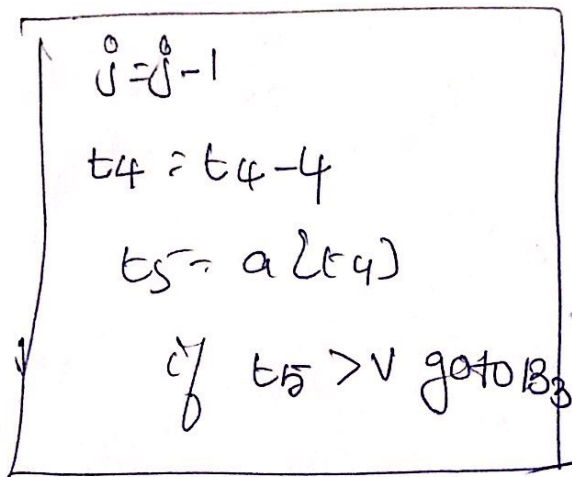 j=j-1
t4=t4-4
t5=a[t4]
if t5>v goto B3